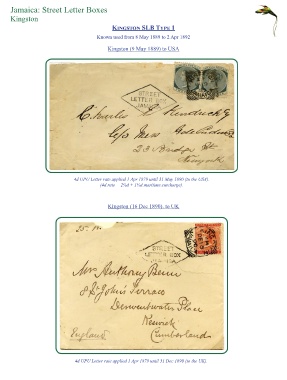 Jamaica: Street Letter Boxes
Kingston
KINGSTON SLB TYPE 1
Known used from 8 May 1889 to 2 Apr 1892
Kingston (9 May 1889) to USA
STREET
LETTER BOX
JAMAICA
Charles C Kendrick
C/o Miss
23 Bridge St
4d UPU Letter rate applied 1 Apr 1879 until 31 May 1890 (to the USA)
(4d rate = 2½d + 1½d maritime surcharge)
Kingston (16 Dec 1890), to UK
STREET
LETTER BOX
JAMAICA
Mrs Anthony Benn
8 St John's Terrace
Derwentwater Place
Keswick
England
Cumberland
4d UPU Letter rate applied 1 Apr 1879 until 31 Dec 1890 (to the UK)